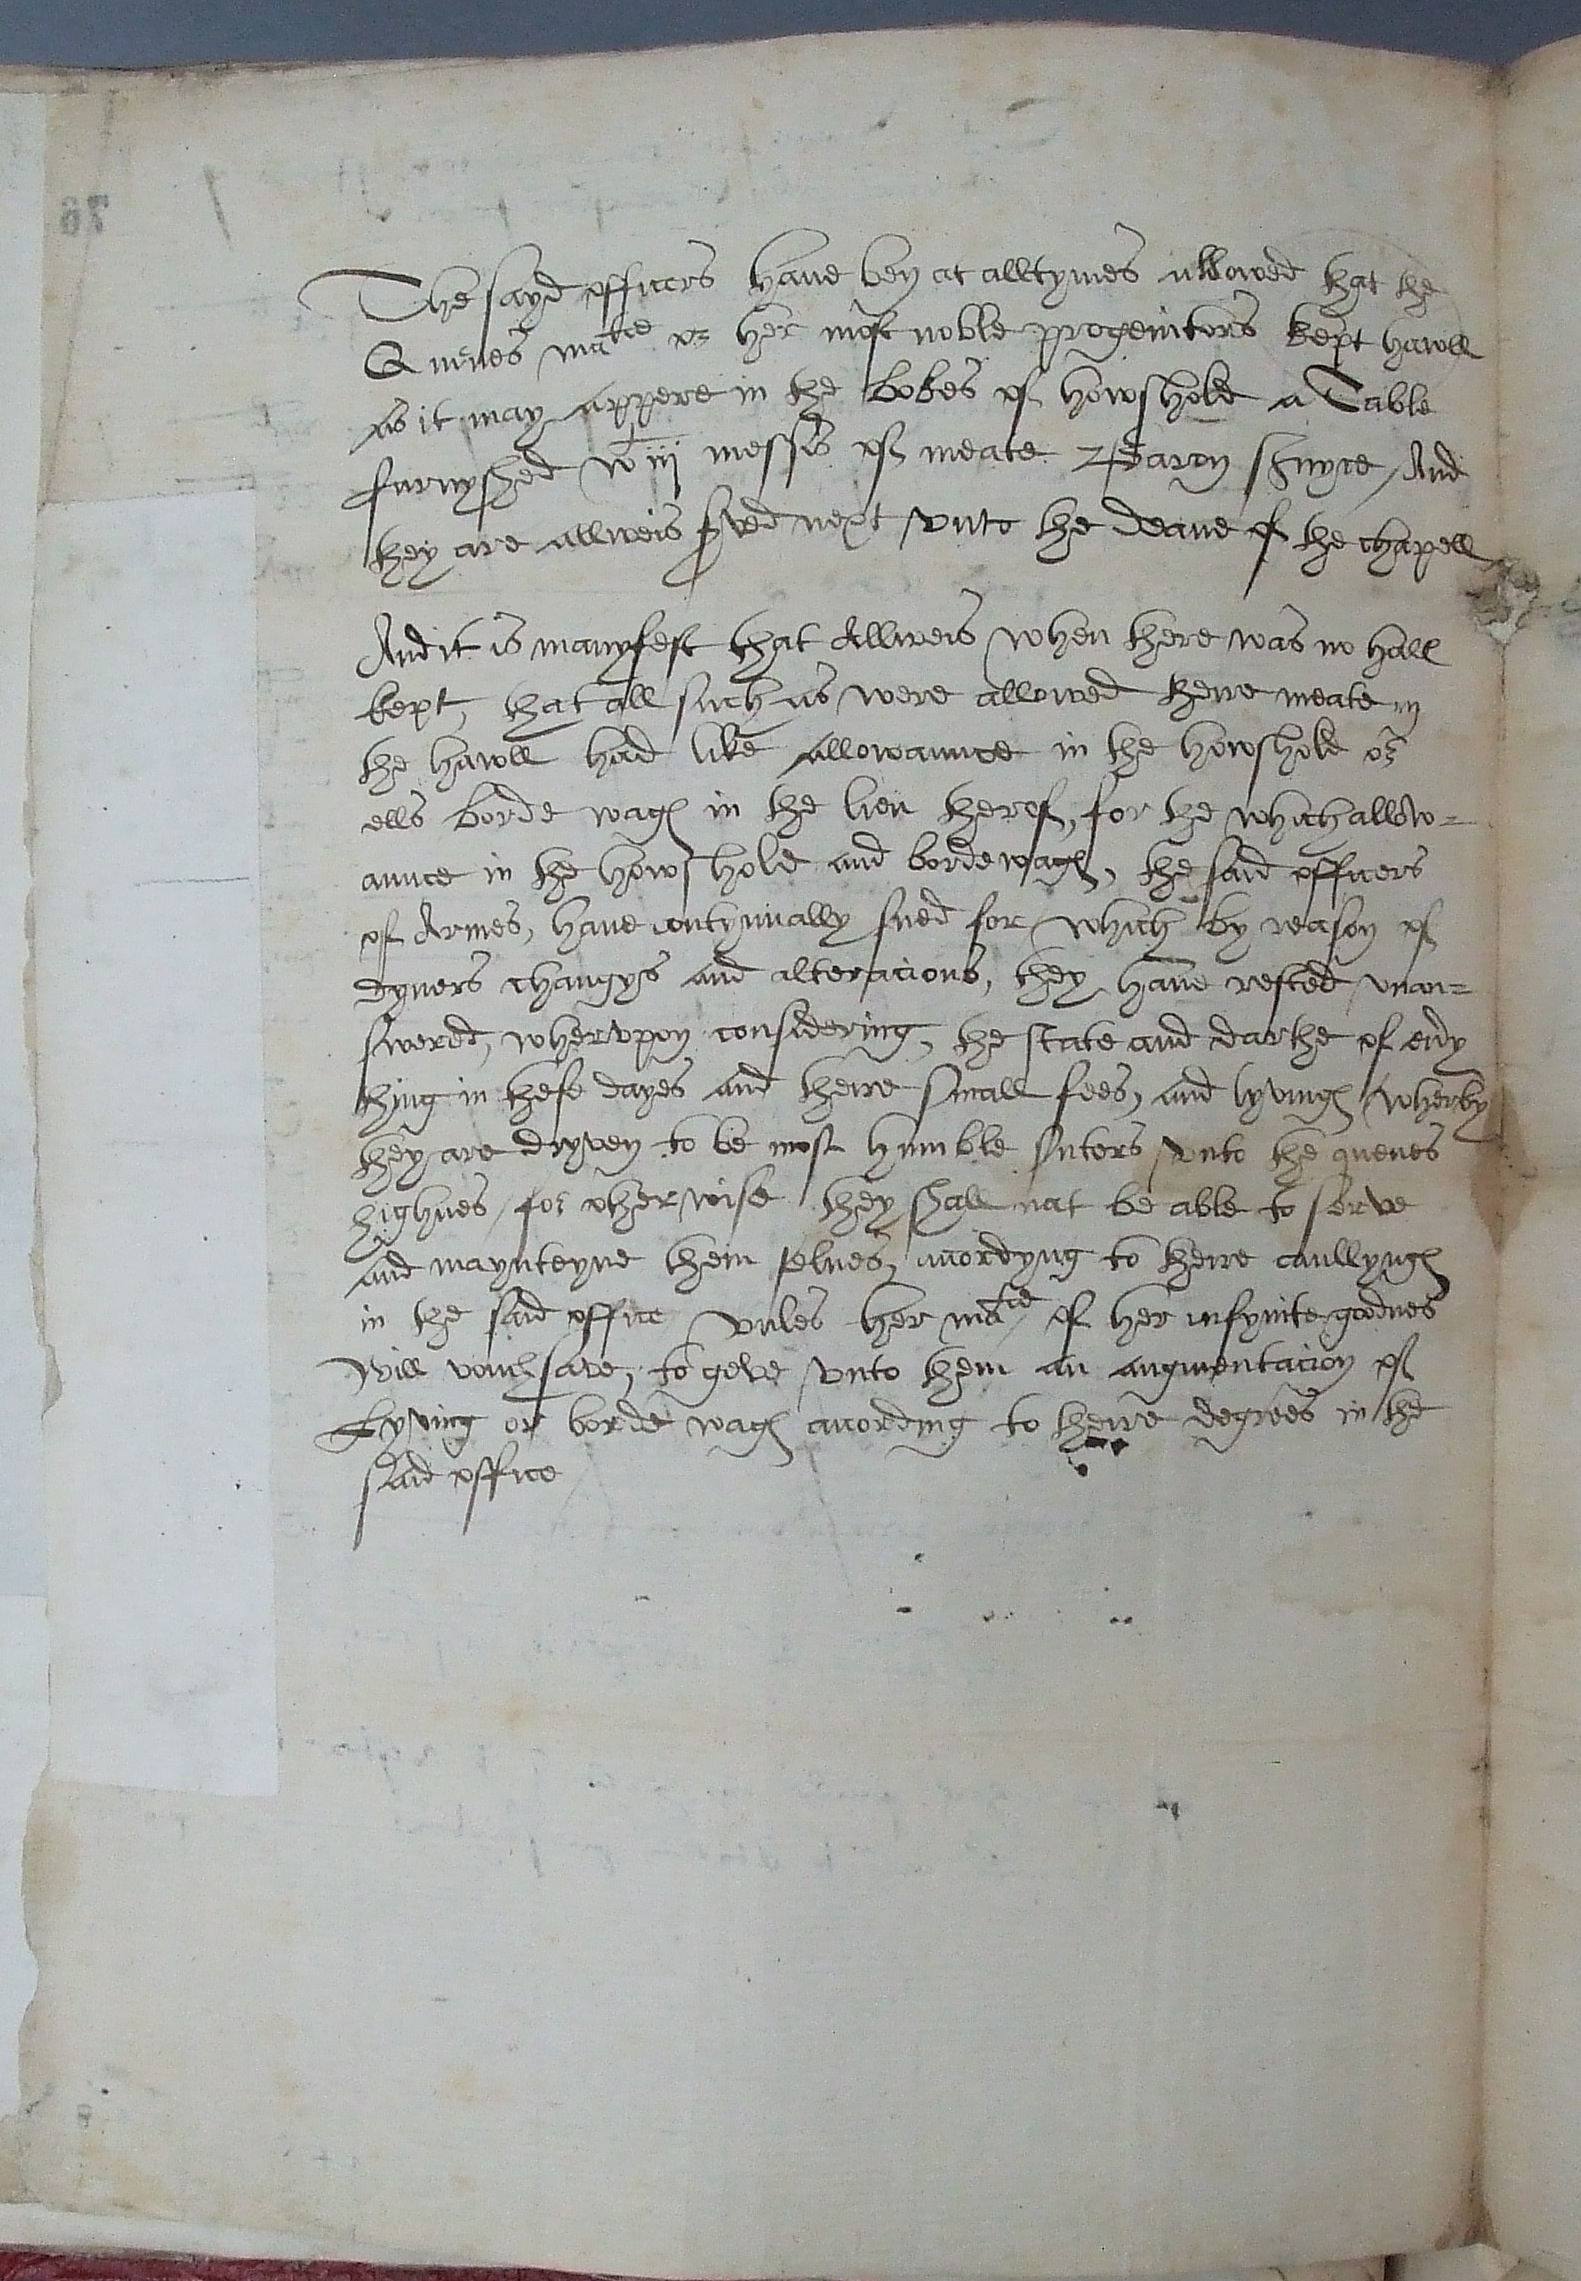 The sayd officers have ben at alltymes allowed that the
Quenes ma^tie or her most noble progenitors kept hawll
as it may appere in the bokes of howshold a Table
furnyshed w^t iij messis of meate & Baron s͞vyce / And
they are allweis s͞ved next vnto the deane of the chapell
And it is manyfest that Allweis when there was no hall
kept, that all such as were allowed theire meate in
the hawll had like Allowaunce in the howshold or
ells borde wag in the lieu therof, for the which allow=
aunce in the howshold and bordewag, the said officers
of Armes, have contynually sued for / which by reason of
dyuers changys and alteracions, they haue rested vnan=
swerd, whervpon considering, the state and darthe of eu͞y
thing in these dayes and theire small fees, and lyving wherby
they are dryven to be most humble suters vnto the quenes
highnes / for otherwise they shall nat be able to serve
and maynteyne them selues, accordyng to theire caullyng
in the said office / vnles her ma^tie of her infynite goodnes
will vouchsave, to geve vnto them an augmentacion of
Lyving or borde wag according to theire degrees in the
said office
76